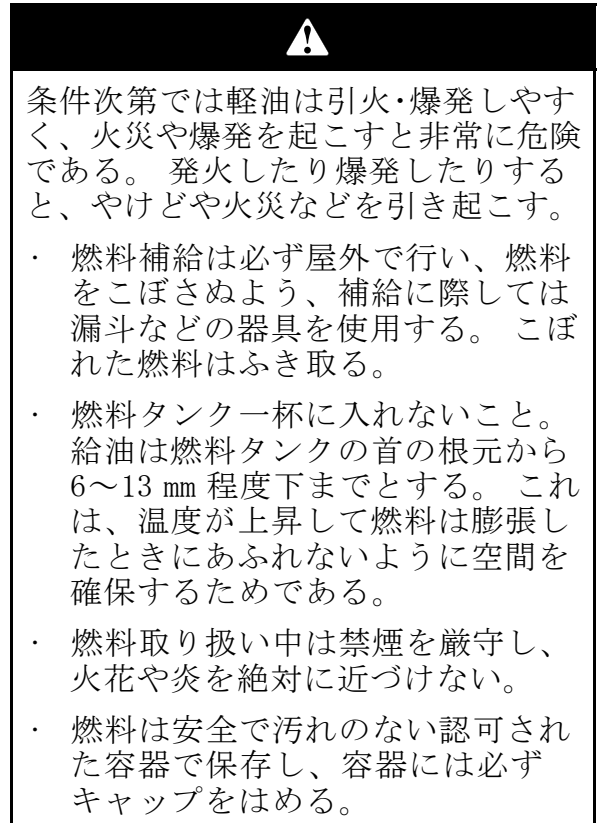 条件次第では軽油は引火･爆発しやす
く、火災や爆発を起こすと非常に危険
である。 発火したり爆発したりする
と、やけどや火災などを引き起こす。
· 燃料補給は必ず屋外で行い、燃料
をこぼさぬよう、補給に際しては
漏斗などの器具を使用する。 こぼ
れた燃料はふき取る。
· 燃料タンク一杯に入れないこと。
給油は燃料タンクの首の根元から
6～13 mm 程度下までとする。 これ
は、温度が上昇して燃料は膨張し
たときにあふれないように空間を
確保するためである。
· 燃料取り扱い中は禁煙を厳守し、
火花や炎を絶対に近づけない。
· 燃料は安全で汚れのない認可され
た容器で保存し、容器には必ず
キャップをはめる。